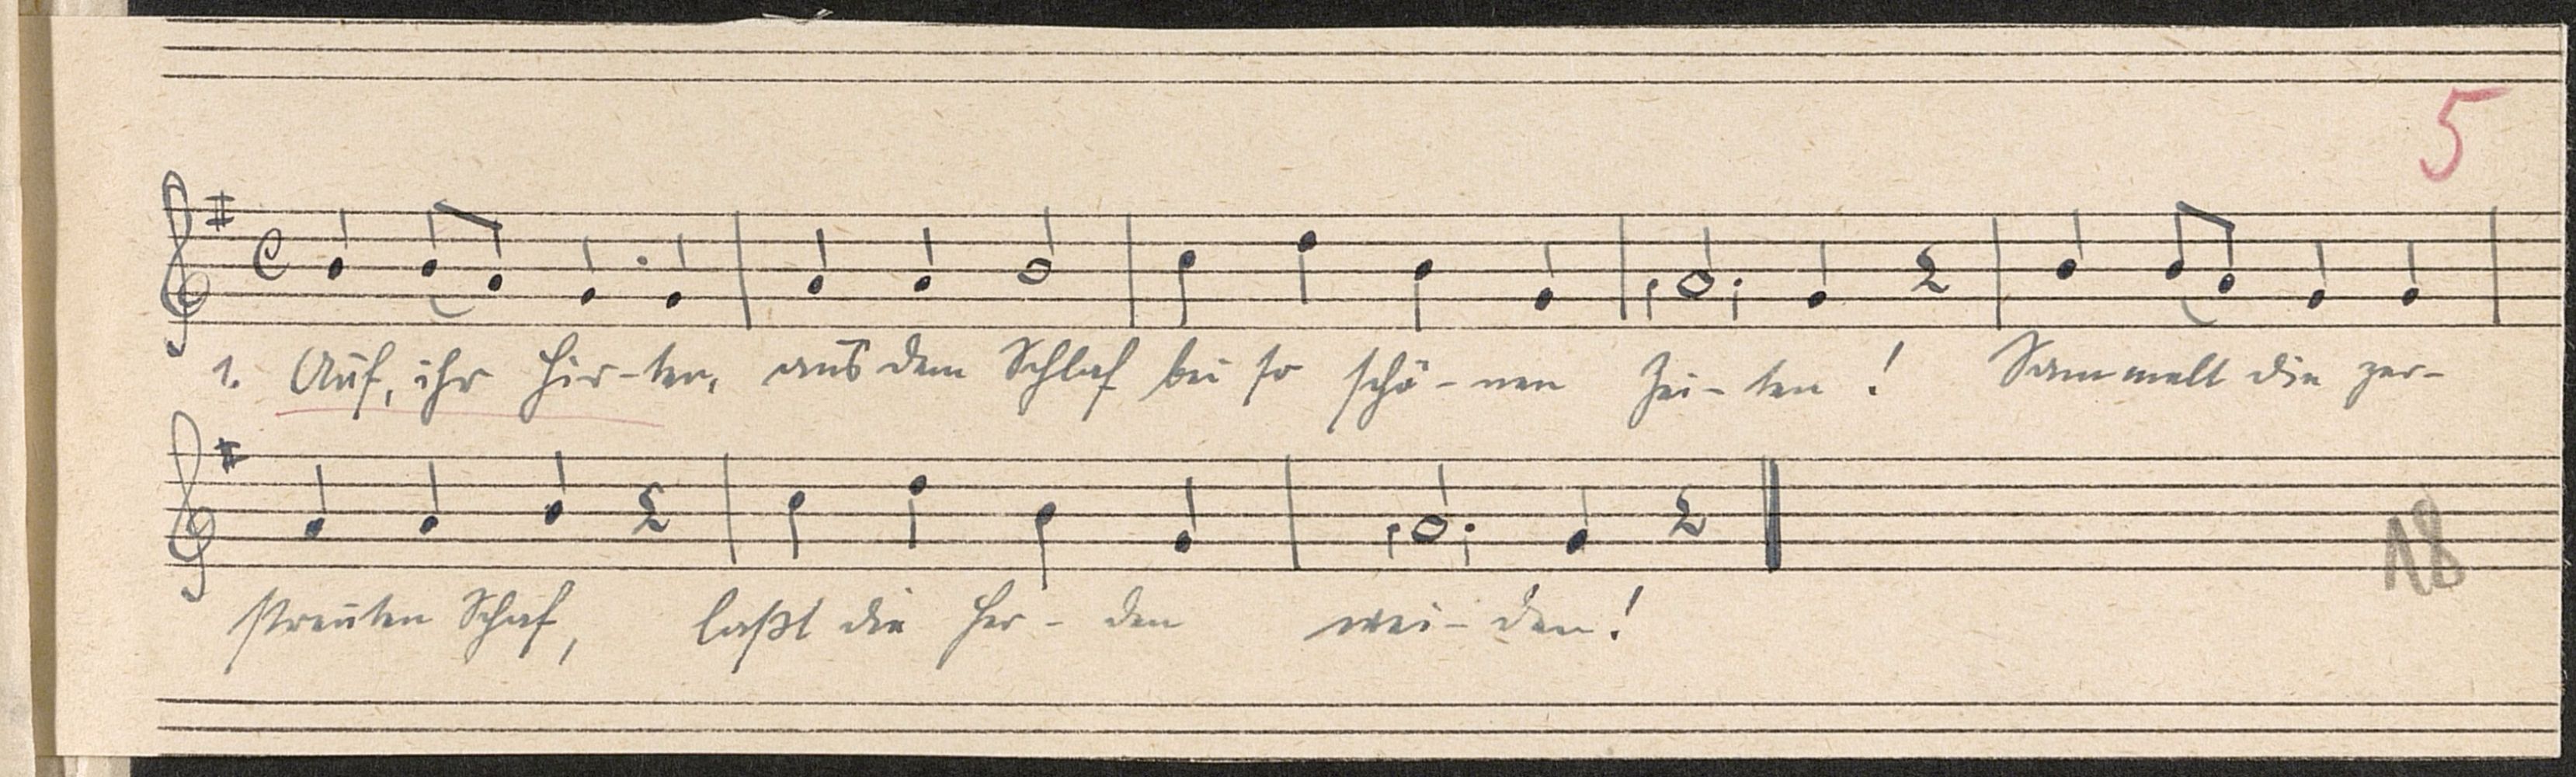 5
1. Auf, ihr Hir-ten, aus dem Schlaf bei so schö-nen Zei-ten! Sammelt die zer-
streuten Schaf, laßt die Her-den wei-den!
18